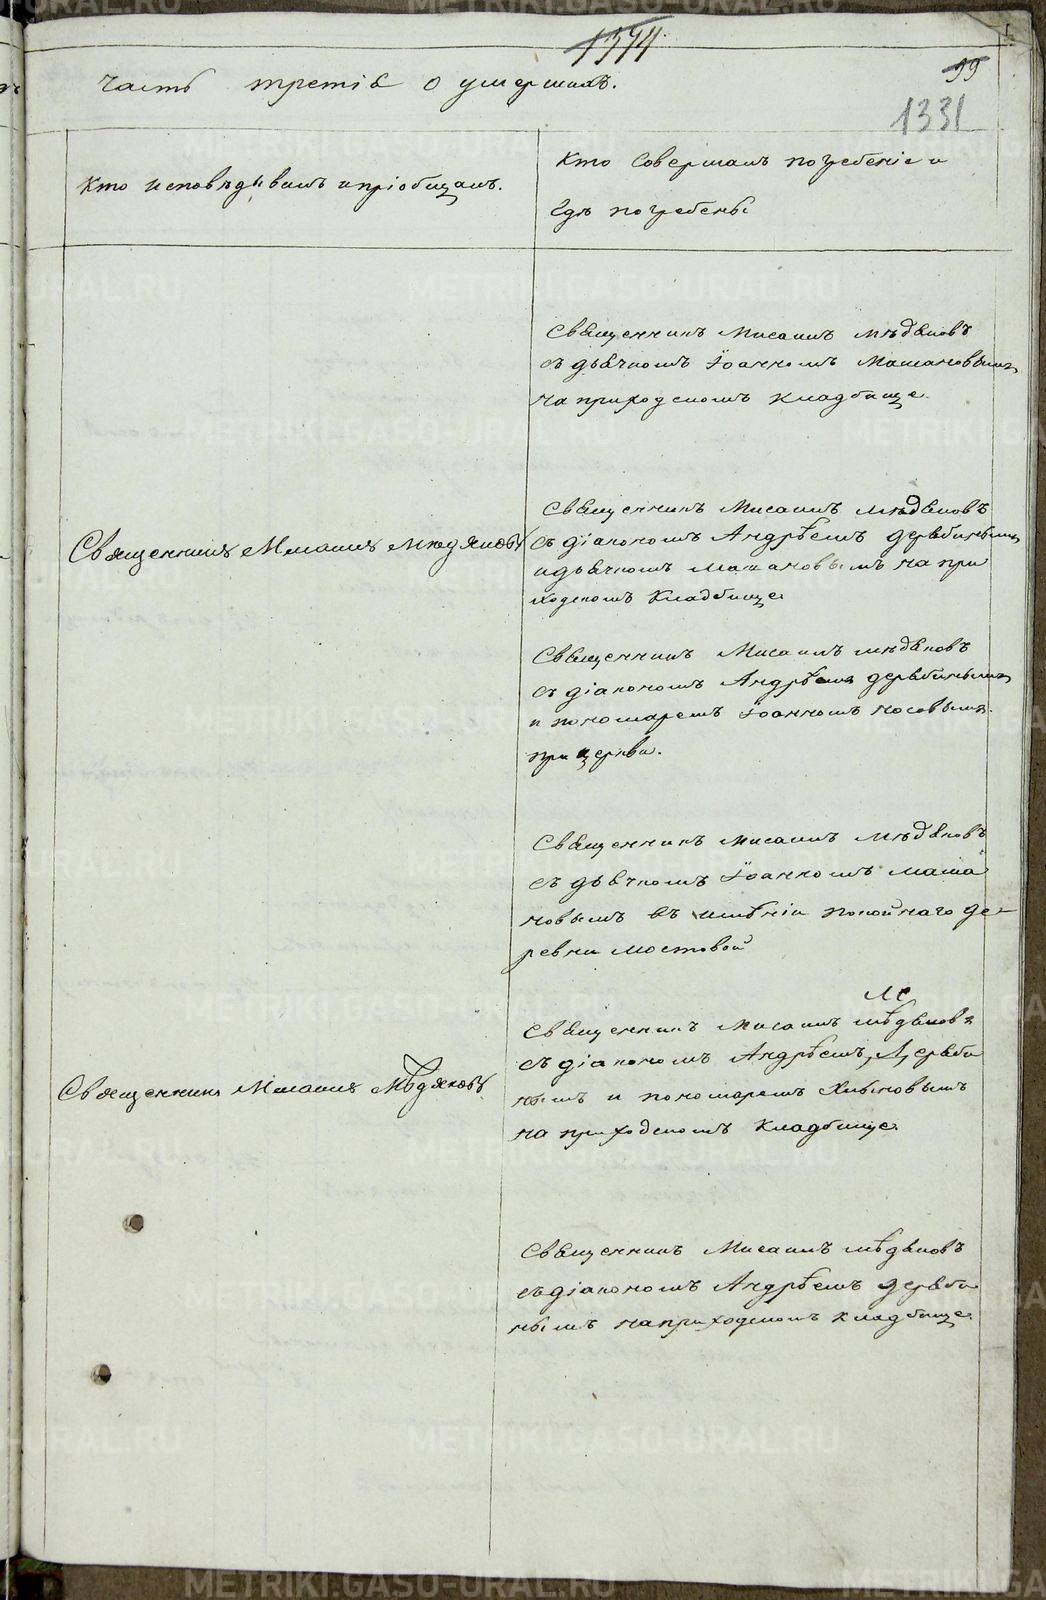 1374
99
1331
Часть третія о умершихъ.
Кто исповѣдывалъ и пріобщалъ.
Кто совершалъ погребеніе и
гдѣ погребены
Священникъ Мисаилъ Мѣдяковъ
съ дьячкомъ Іоанномъ Машановымъ
на приходскомъ кладбище.
Священникъ Мисаилъ Мюдяковъ
Священникъ Мисаилъ Мѣдяковъ
съ діакономъ Андрѣемъ Дерябинымъ
и дьячкомъ Машановымъ на при
ходскомъ кладбище
Священникъ Мисаилъ Мѣдяковъ
съ діакономъ Андрѣемъ Дерябинымъ
и пономаремъ Іоанномъ Носовымъ.
при церкви.
Священникъ Мисаилъ Мѣдяковъ
съ дьячкомъ Іоанномъ Маша
новымъ въ имѣніи покойнаго де-
ревни Мостовой
Священникъ Мисаилъ Мѣдяковъ
Священникъ Мисаилъ Мѣдяковъ
съ діакономъ Андрѣемъ Деряби
нымъ и пономаремъ
на приходскомъ кладбище.
Священникъ Мисаилъ Мѣдяковъ
съ діакономъ Андрѣемъ Деряби
нымъ на приходскомъ кладбище.
METRIKI.GASO-URAL.RU